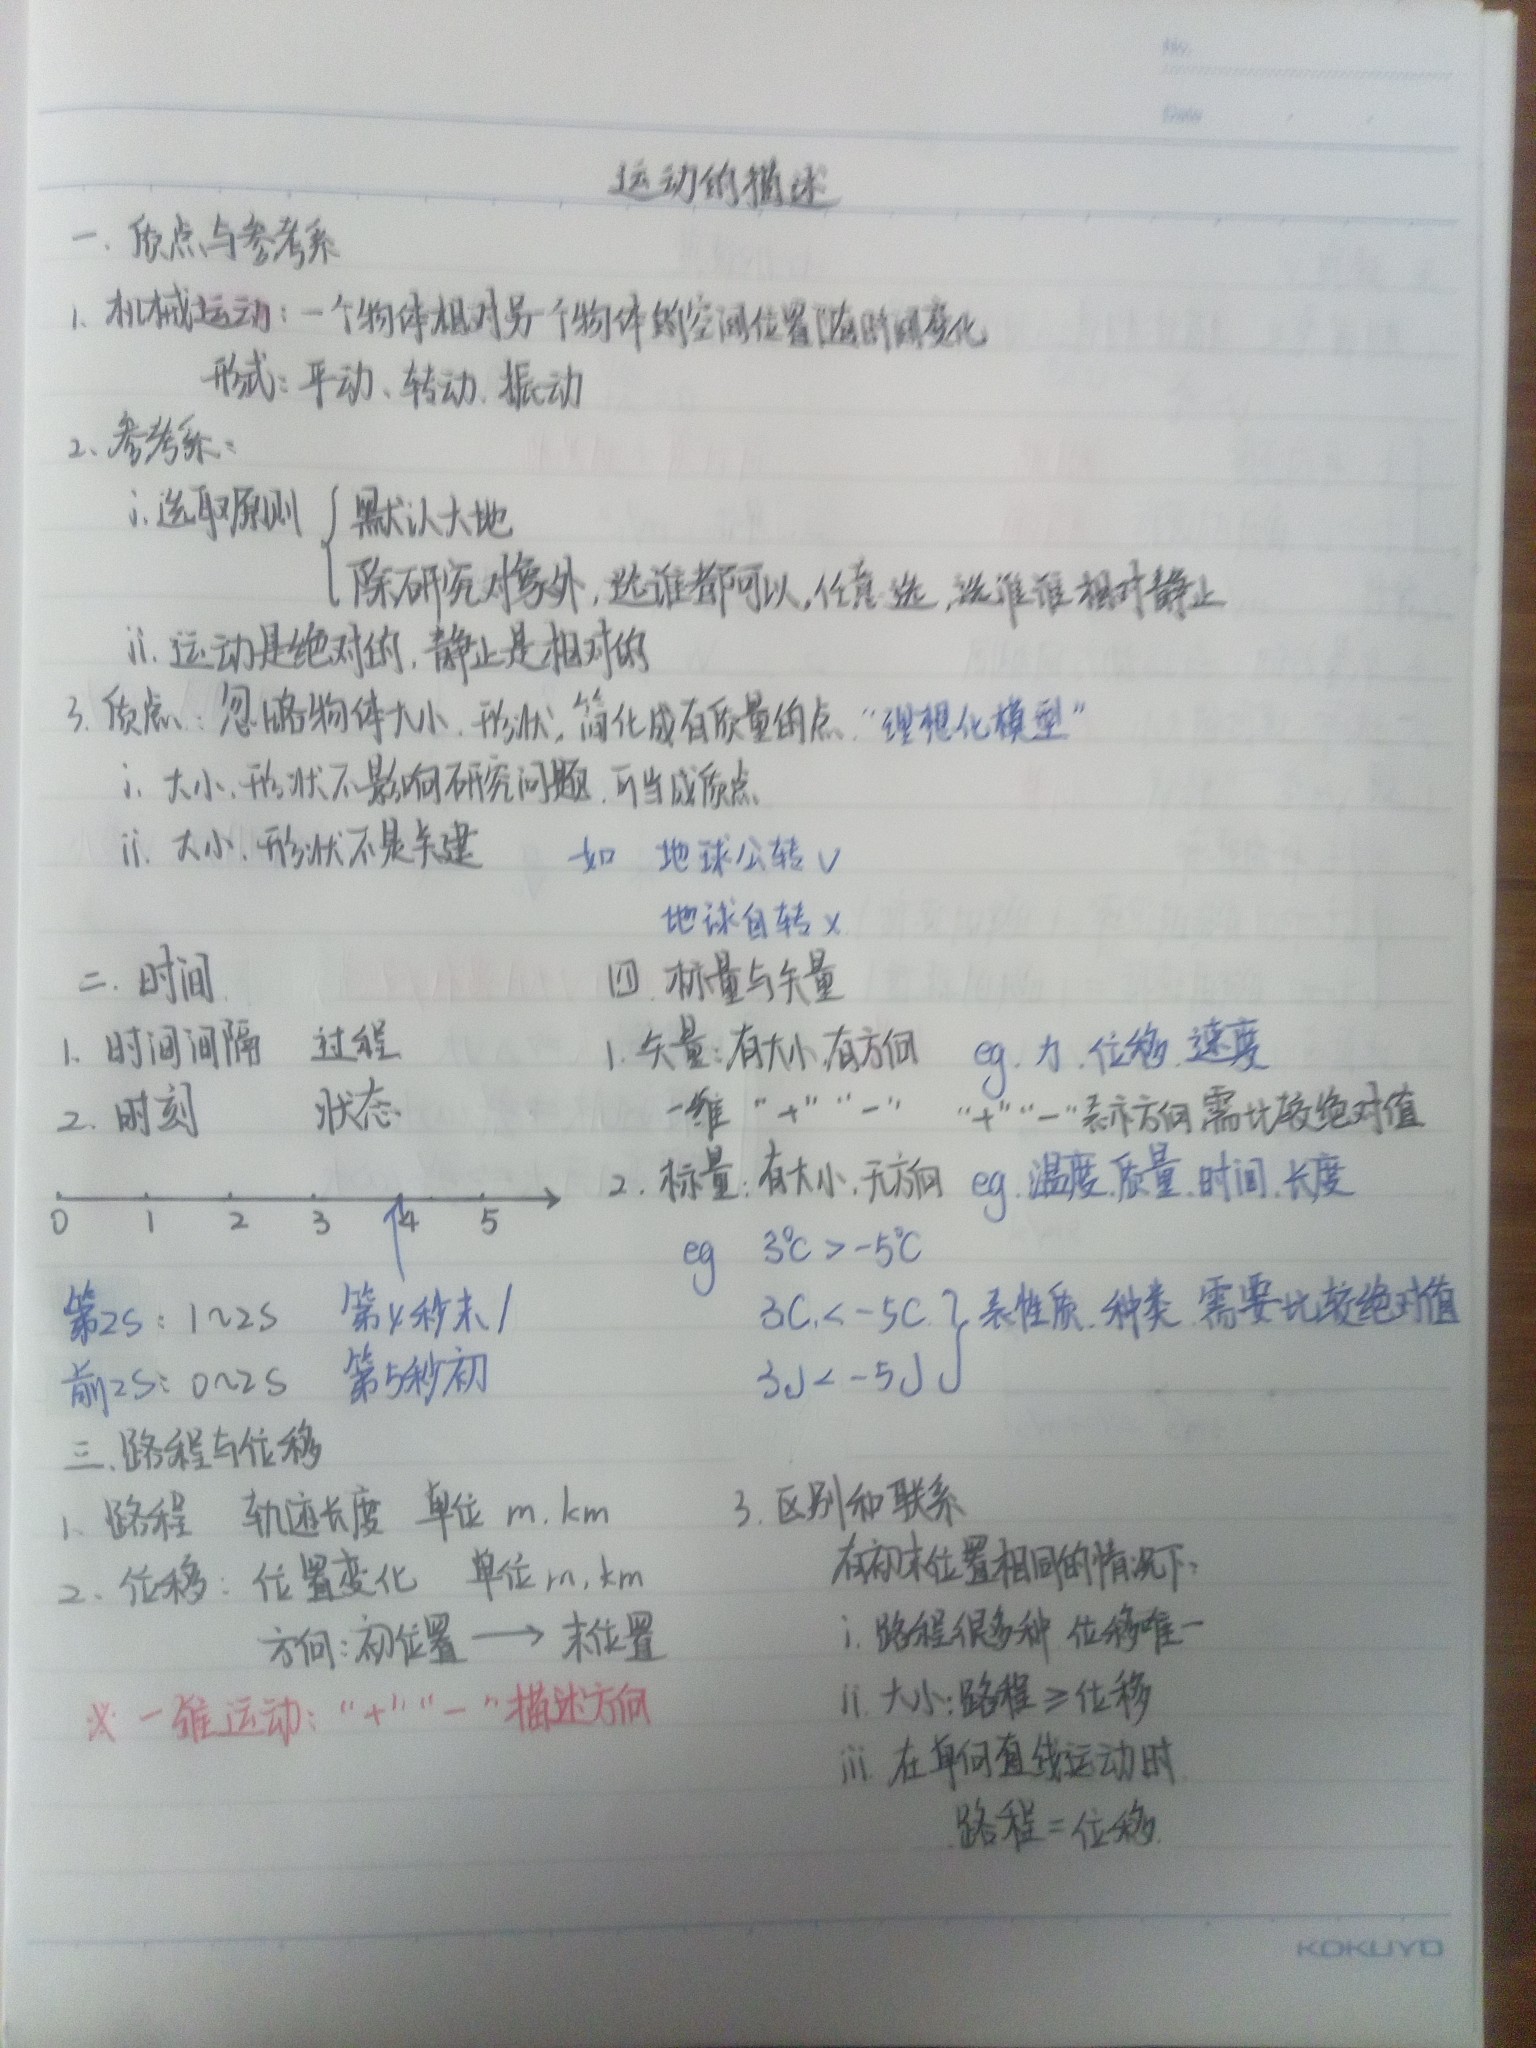 No.
Date
运动的描述
一. 质点与参考系
1、机械运动：一个物体相对另一个物体的空间位置随时间变化
形式：平动、转动、振动
2、参考系：
i. 选取原则 { 默认大地
除研究对象外，选谁都可以，任意选，选谁谁相对静止
ii. 运动是绝对的，静止是相对的
3. 质点：忽略物体大小、形状，简化成有质量的点. “理想化模型”
i. 大小、形状不影响研究问题，可当成质点
ii. 大小、形状不是关键 如 地球公转√
地球自转×
二. 时间
1. 时间间隔 过程
2. 时刻 状态
0 1 2 3 4 5
第2s：1~2s 第4秒末/
前2s：0~2s 第5秒初
三. 路程与位移
1. 路程 轨迹长度 单位 m. km
2. 位移：位置变化 单位 m, km
方向：初位置 → 末位置
※ 一维运动：“+”“-”描述方向
四. 标量与矢量
1. 矢量：有大小，有方向 eg. 力. 位移. 速度
一维 “+”“-” “+”“-”表示方向 需比较绝对值
2. 标量：有大小，无方向 eg. 温度. 质量. 时间. 长度
eg 3℃ > -5℃
3C < -5C } 表性质. 种类. 需要比较绝对值
3J < -5J
3. 区别和联系
在初末位置相同的情况下：
i. 路程很多种 位移唯一
ii. 大小：路程 ≥ 位移
iii. 在单向直线运动时
路程 = 位移.
KOKUYO